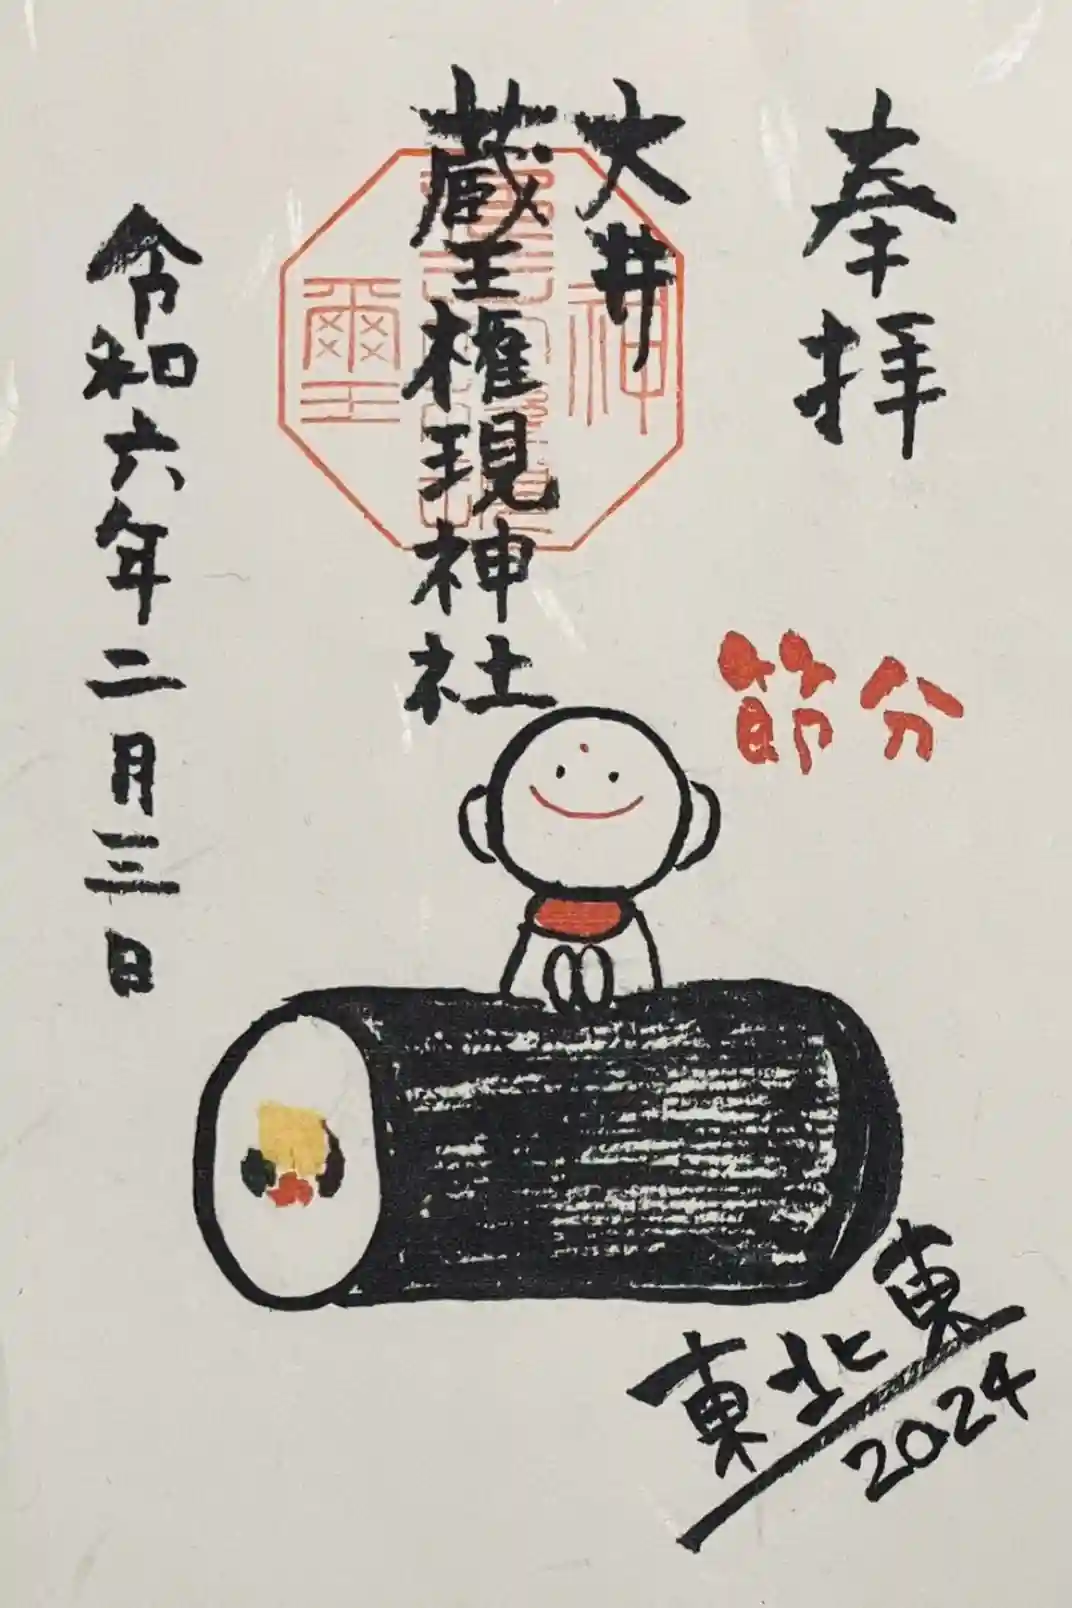 奉拝
大井
蔵王権現神社
神
璽
節分
令和六年二月三日
東北東
2024